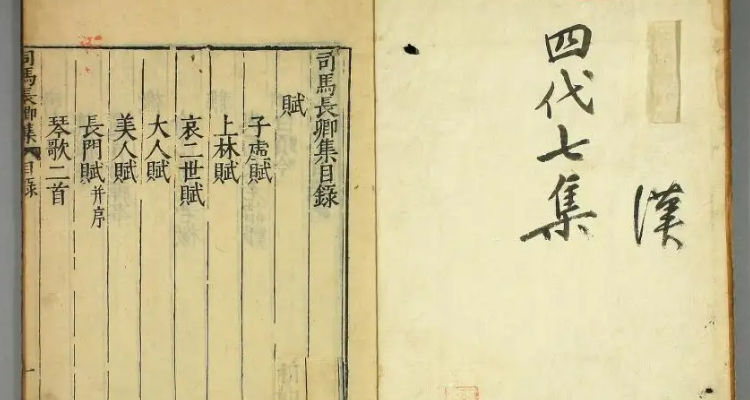 漢
四代七集
司馬長卿集目錄
賦
子虛賦
上林賦
哀二世賦
大人賦
美人賦
長門賦并序
琴歌二首
司馬長卿集 目錄 一